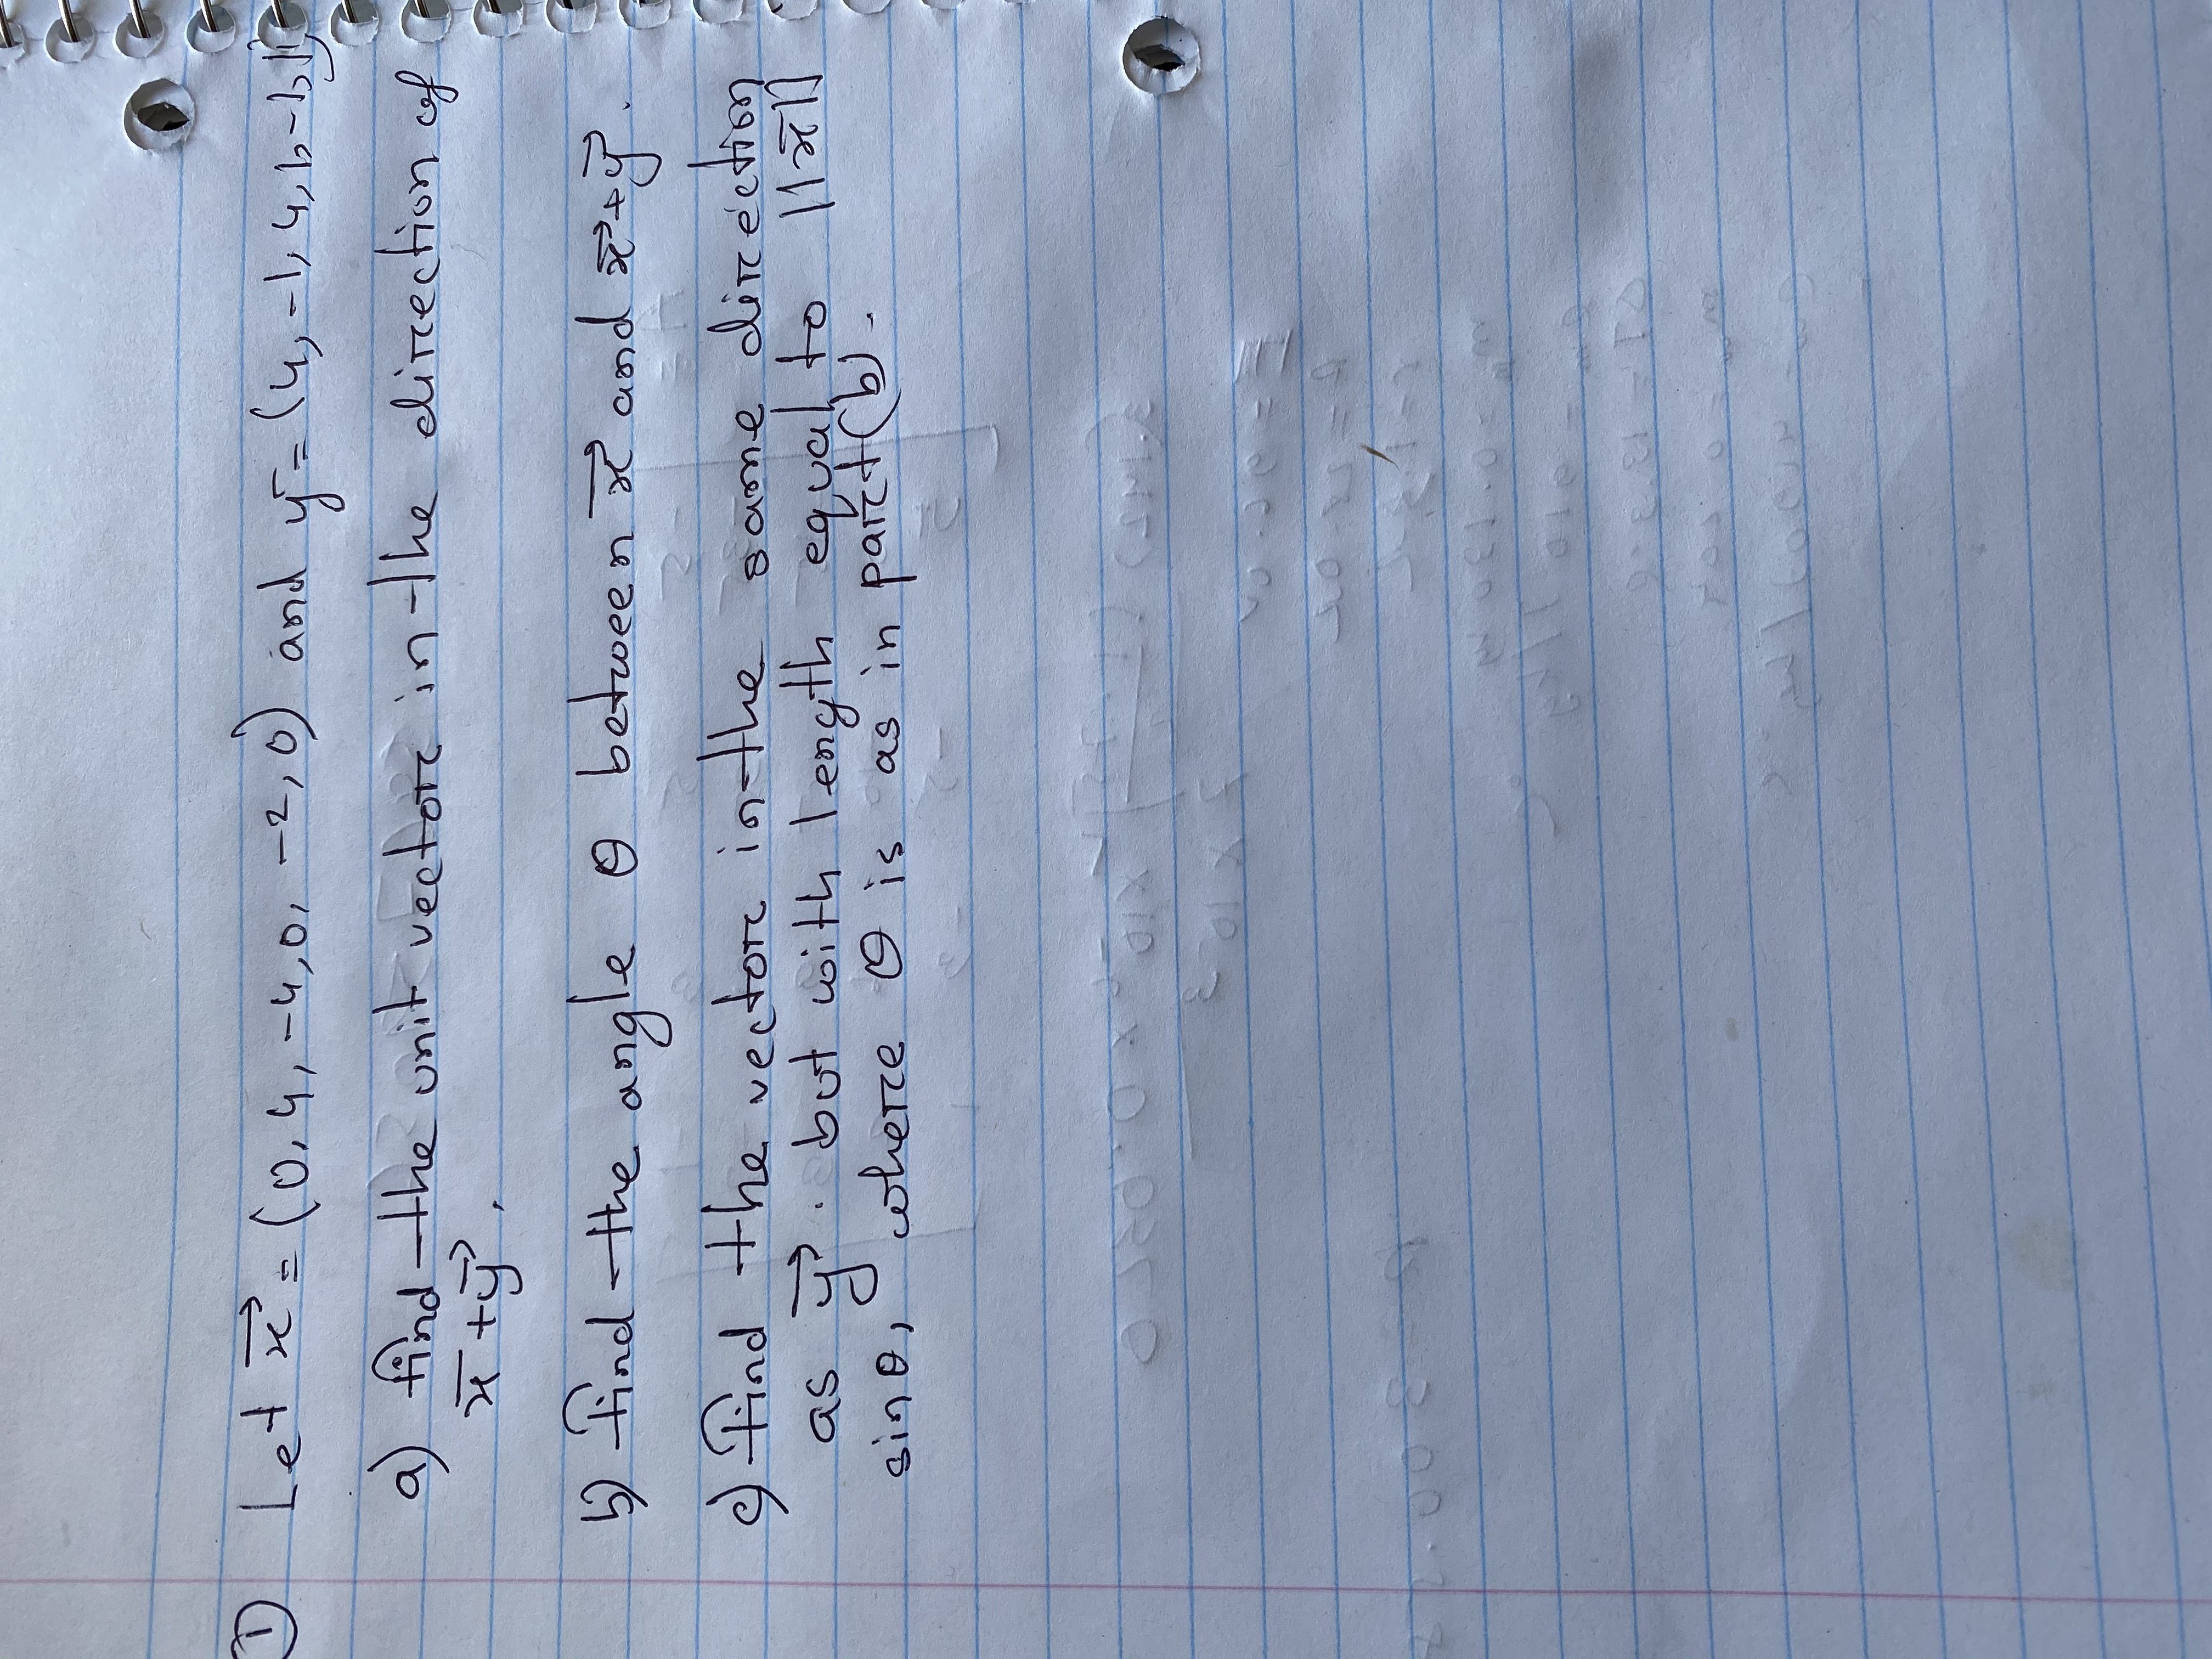 ① Let x⃗ = (0, 4, -4, 0, -2, 0) and y⃗ = (4, -1, 4, 1, -1, 1)
a) find the unit vector in the direction of
x⃗ + y⃗.
b) find the angle θ between x⃗ and x⃗ + y⃗.
c) find the vector in the same direction
as y⃗ but with length equal to ||x⃗||
sinθ, where θ is as in part (b).